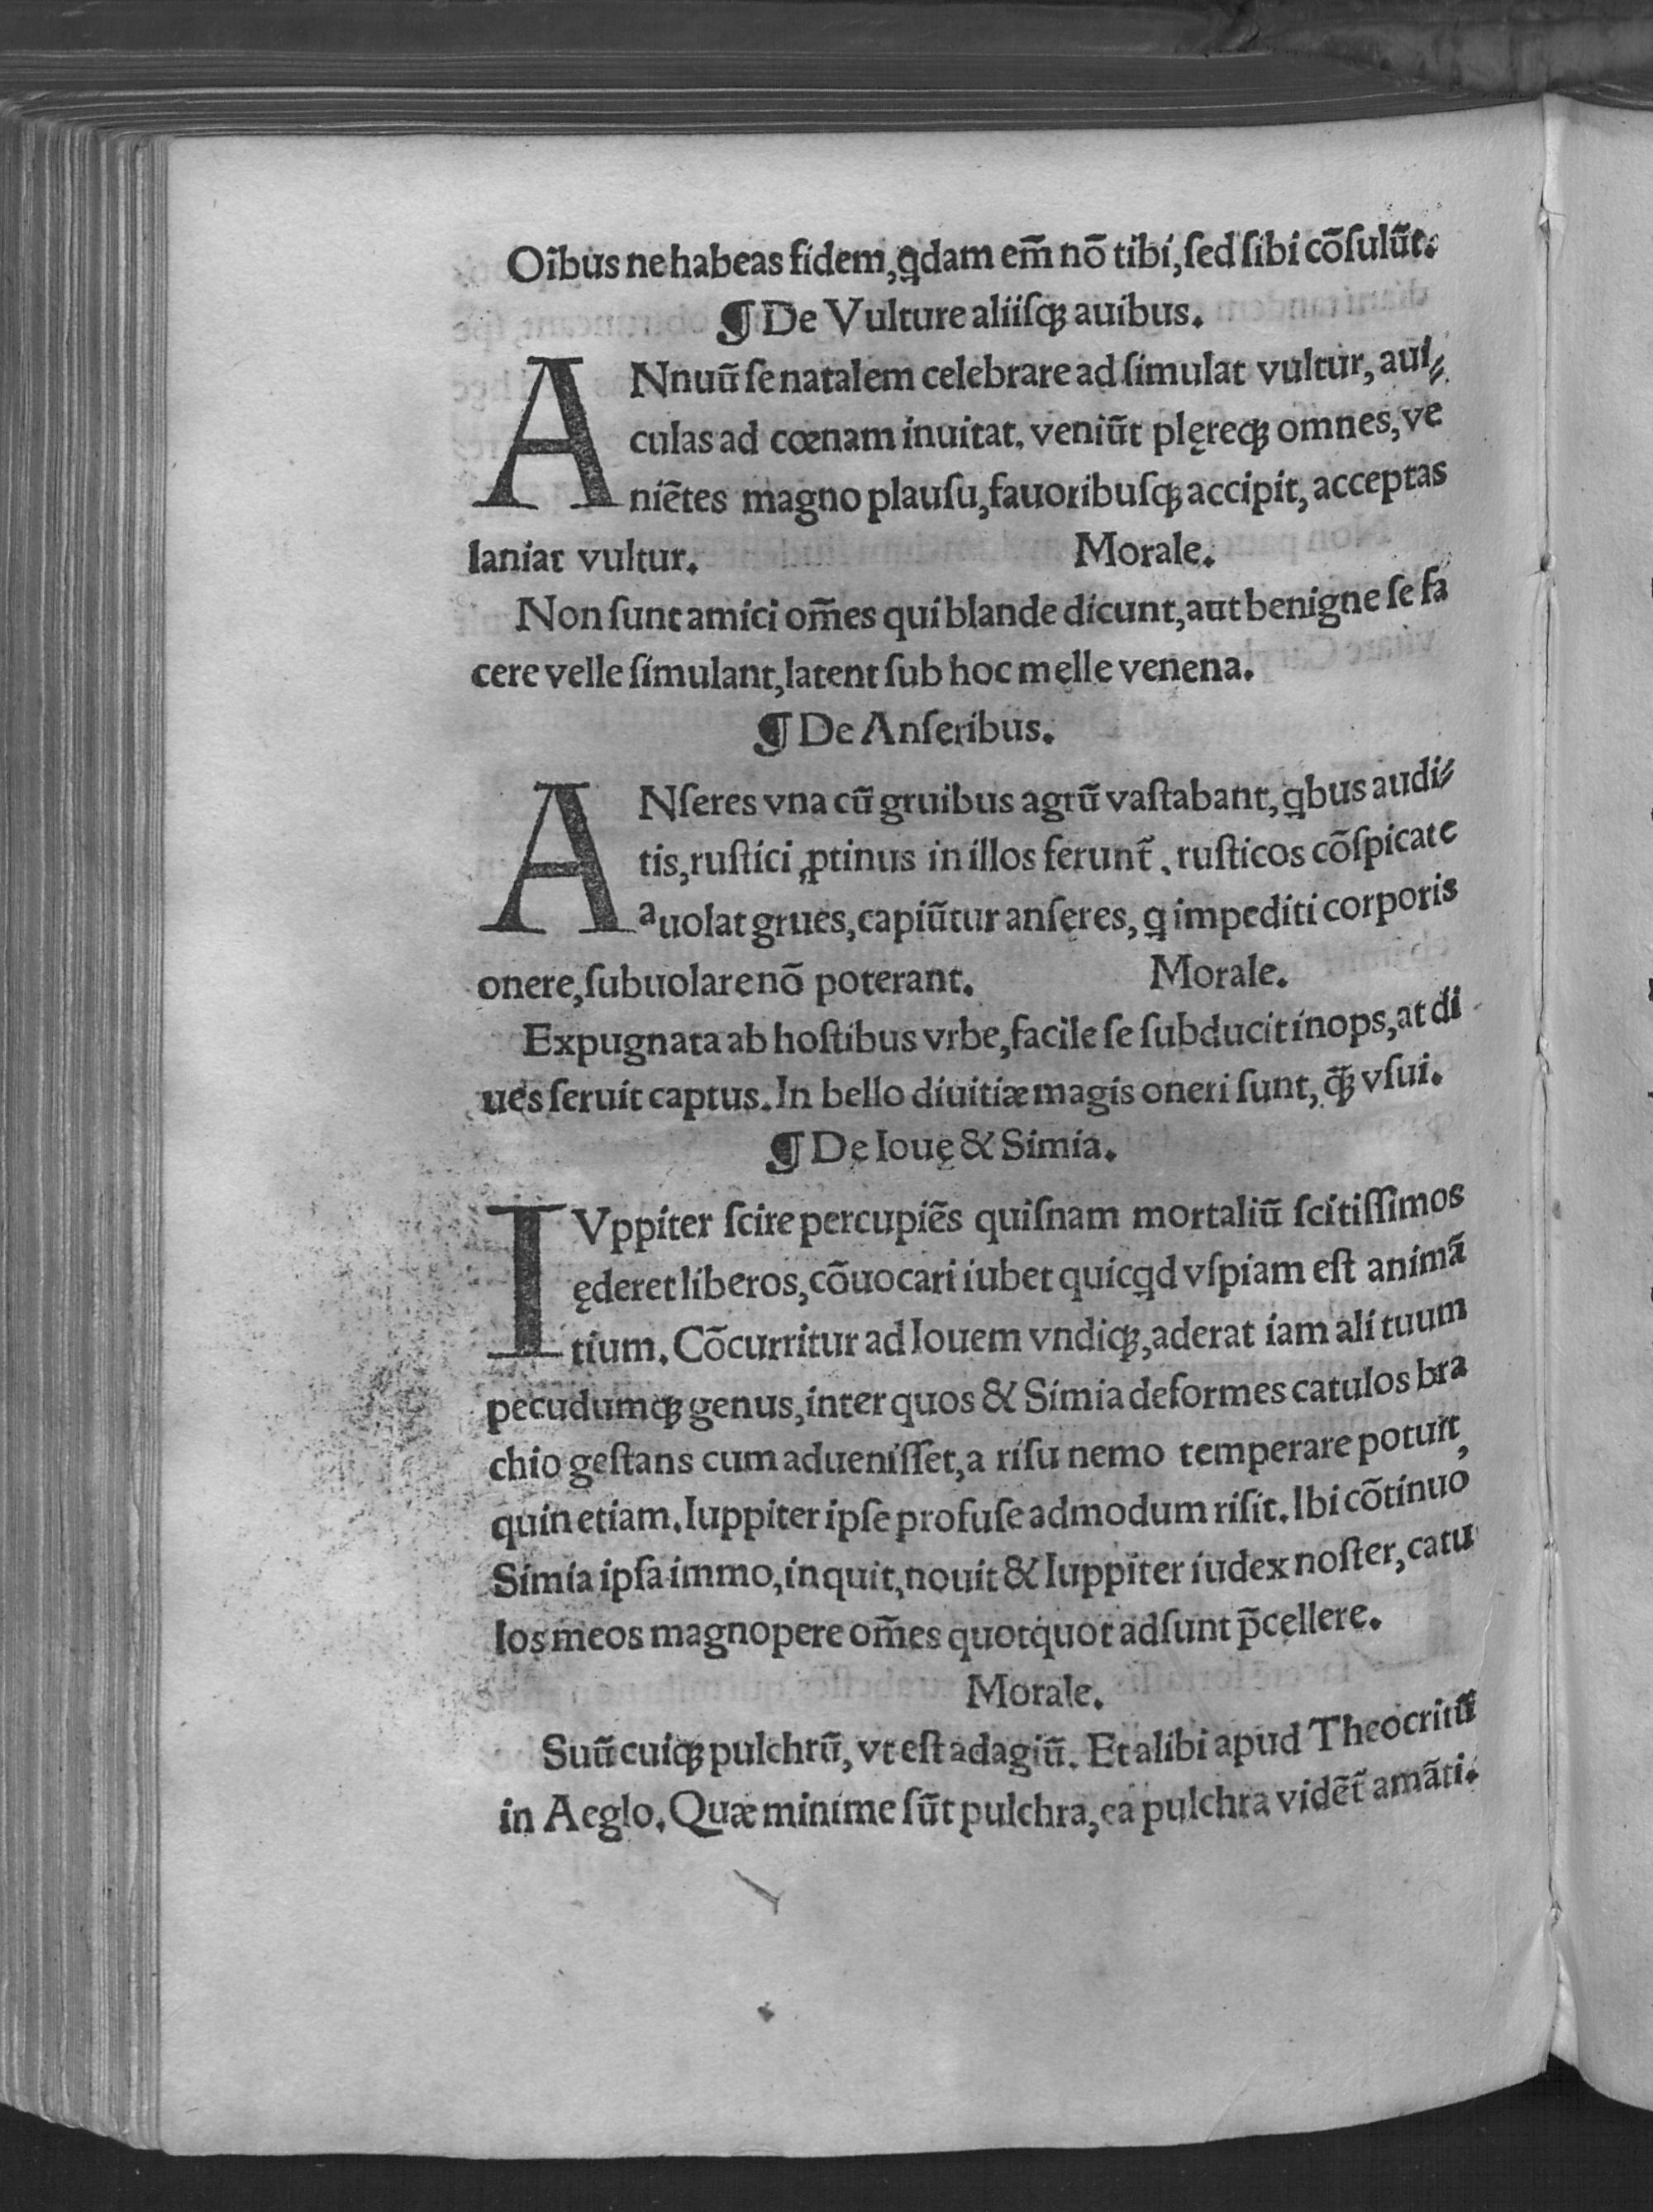 Oībus ne habeas fidem, qdam em̄ nō tibi, ſed ſibi cōſulūt.
¶ De Vulture aliiſqꝫ auibus.
ANnuū ſe natalem celebrare ad ſimulat vultur, aui⸗
culas ad cœnam inuitat. veniūt plęreqꝫ omnes, ve
niētes magno plauſu, fauoribuſqꝫ accipit, acceptas
laniat vultur. Morale.
Non ſunt amici om̄es qui blande dicunt, aut benigne ſe fa
cere velle ſimulant, latent ſub hoc męlle venena.
¶ De Anſeribus.
ANſeres vna cū gruibus agrū vaſtabant, ꝗbus audi⸗
tis, ruſtici ꝓtinus in illos ferunt̄. ruſticos cōſpicate
auolat grues, capiūtur anſęres, ꝗ impediti corporis
onere, ſubuolare nō poterant. Morale.
Expugnata ab hoſtibus vrbe, facile ſe ſubducit inops, at di
ues ſeruit captus. In bello diuitiæ magis oneri ſunt, q̄ꝫ vſui.
¶ Dę Iouę & Simia.
IVppiter ſcire percupiēs quiſnam mortaliū ſcitiſſimos
ęderet liberos, cōuocari iubet quicꝗd vſpiam eſt animā
tium. Cōcurritur ad Iouem vndiqꝫ, aderat iam ali tuum
pecudumqꝫ genus, inter quos & Simia deformes catulos bra
chio geſtans cum adueniſſet, a riſu nemo temperare potuit,
quin etiam. Iuppiter ipſe profuſe admodum riſit. Ibi cōtinuo
Simia ipſa immo, inquit, nouit & Iuppiter iudex noſter, catu
los meos magnopere om̄es quotquot adſunt p̄cęllere.
Morale.
Suū cuiqꝫ pulchrū, vt eſt adagiū. Et alibi apud Theocritū
in Aeglo. Quæ minime ſūt pulchra, ea pulchra vidēt̄ amāti.